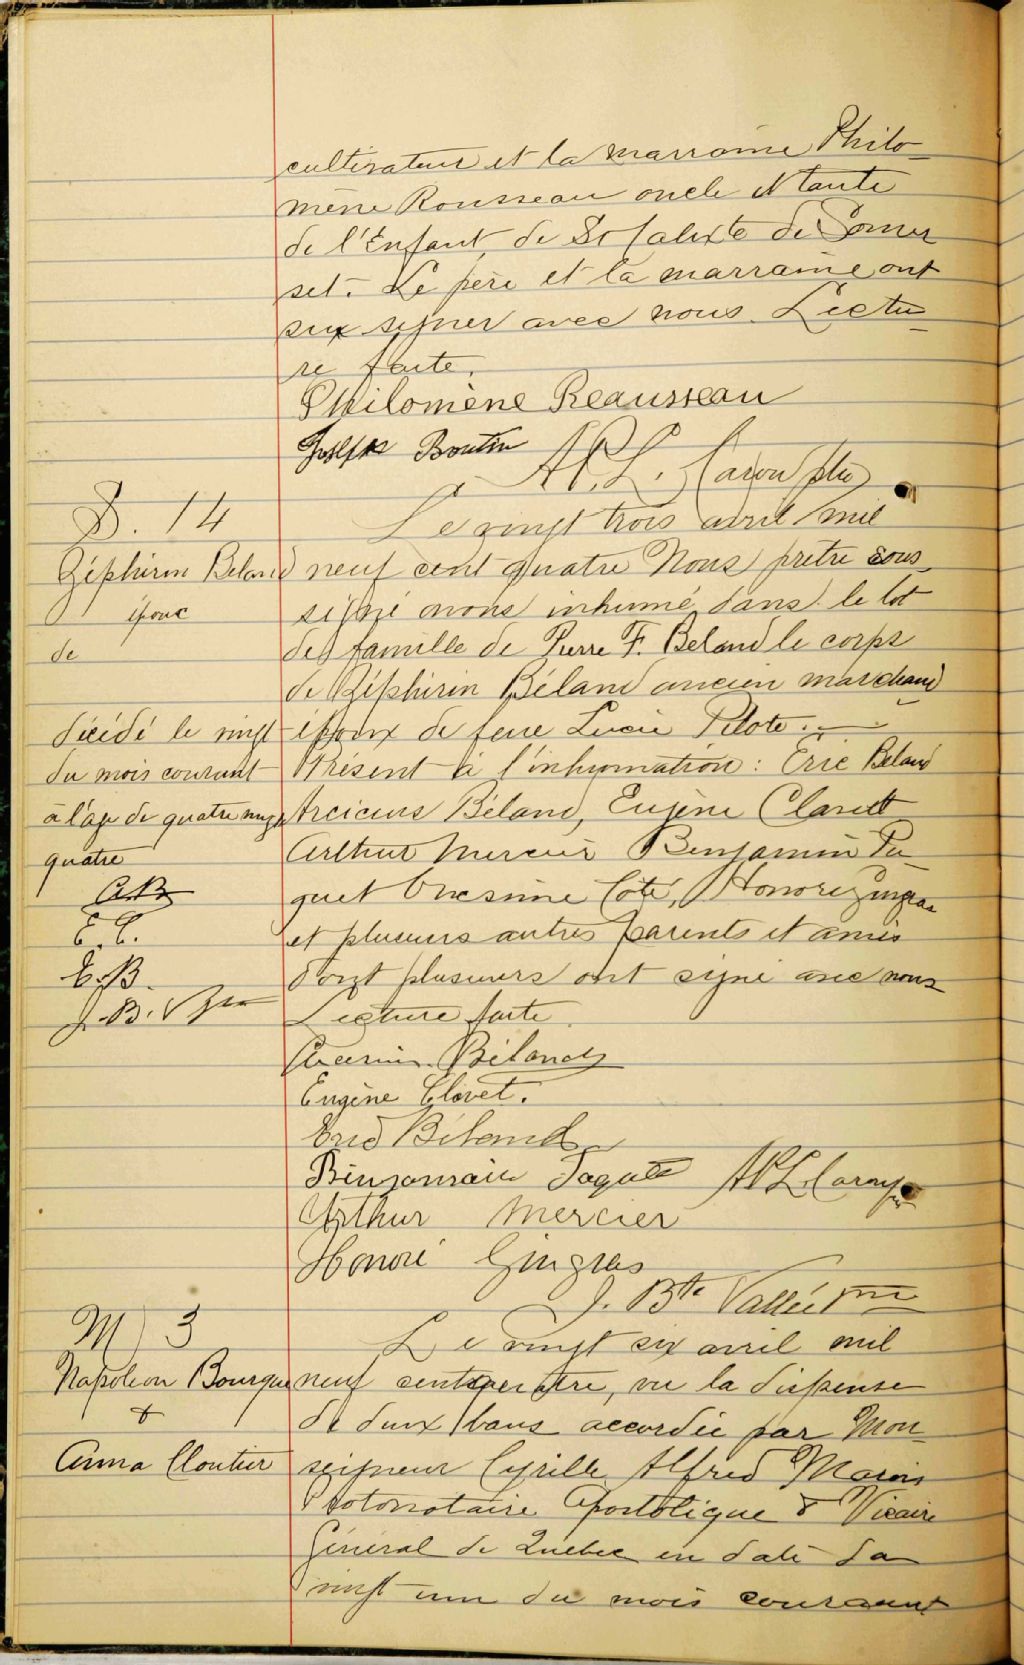 cultivateur et la marraine Philo-
mène Rousseau oncle et tante
de l'Enfant de St Calixte de Somer
set. Le père et la marraine ont
pux signer avec nous. Lectu-
re faite.
Philomène Reausseau
Joseph Boutin
A.P.L. Caron ptre
S. 14
Zéphirin Beland
époux
de
décédé le vingt
du mois courant
à l'âge de quatre vingt
quatre
E. C.
E. B.
J. B. V
Le vingt trois avril mil
neuf cent quatre Nous prètre sous-
signé avons inhumé dans le lot
de famille de Pierre F. Beland le corps
de Zéphirin Béland ancien marchand
époux de feue Lucie Pilote.
Présent à l'inhumation : Eric Beland
Béland, Eugène Clavett
Arthur Mercier Benjamin Pa-
quet Onesime Coté, Honoré Gingras
et plusieurs autres parents et amis
dont plusieurs ont signé avec nous
Lecture faite
Béland
Eugène Clavet.
Eric Béland
Binjamain Paquete
A.P.L. Caron ptre
Arthur Mercier
Honoré Gingras
J. Bte Vallée ptre
M 3
Napoleon Bourque
&
Anna Cloutier
Le vingt six avril mil
neuf cent quatre, vu la dispense
de deux bans accordée par Mon-
seigneur Cyrille Alfred Marois
Protonotaire Apostolique & Vicaire
Général de Québec en date du
vingt un du mois courant